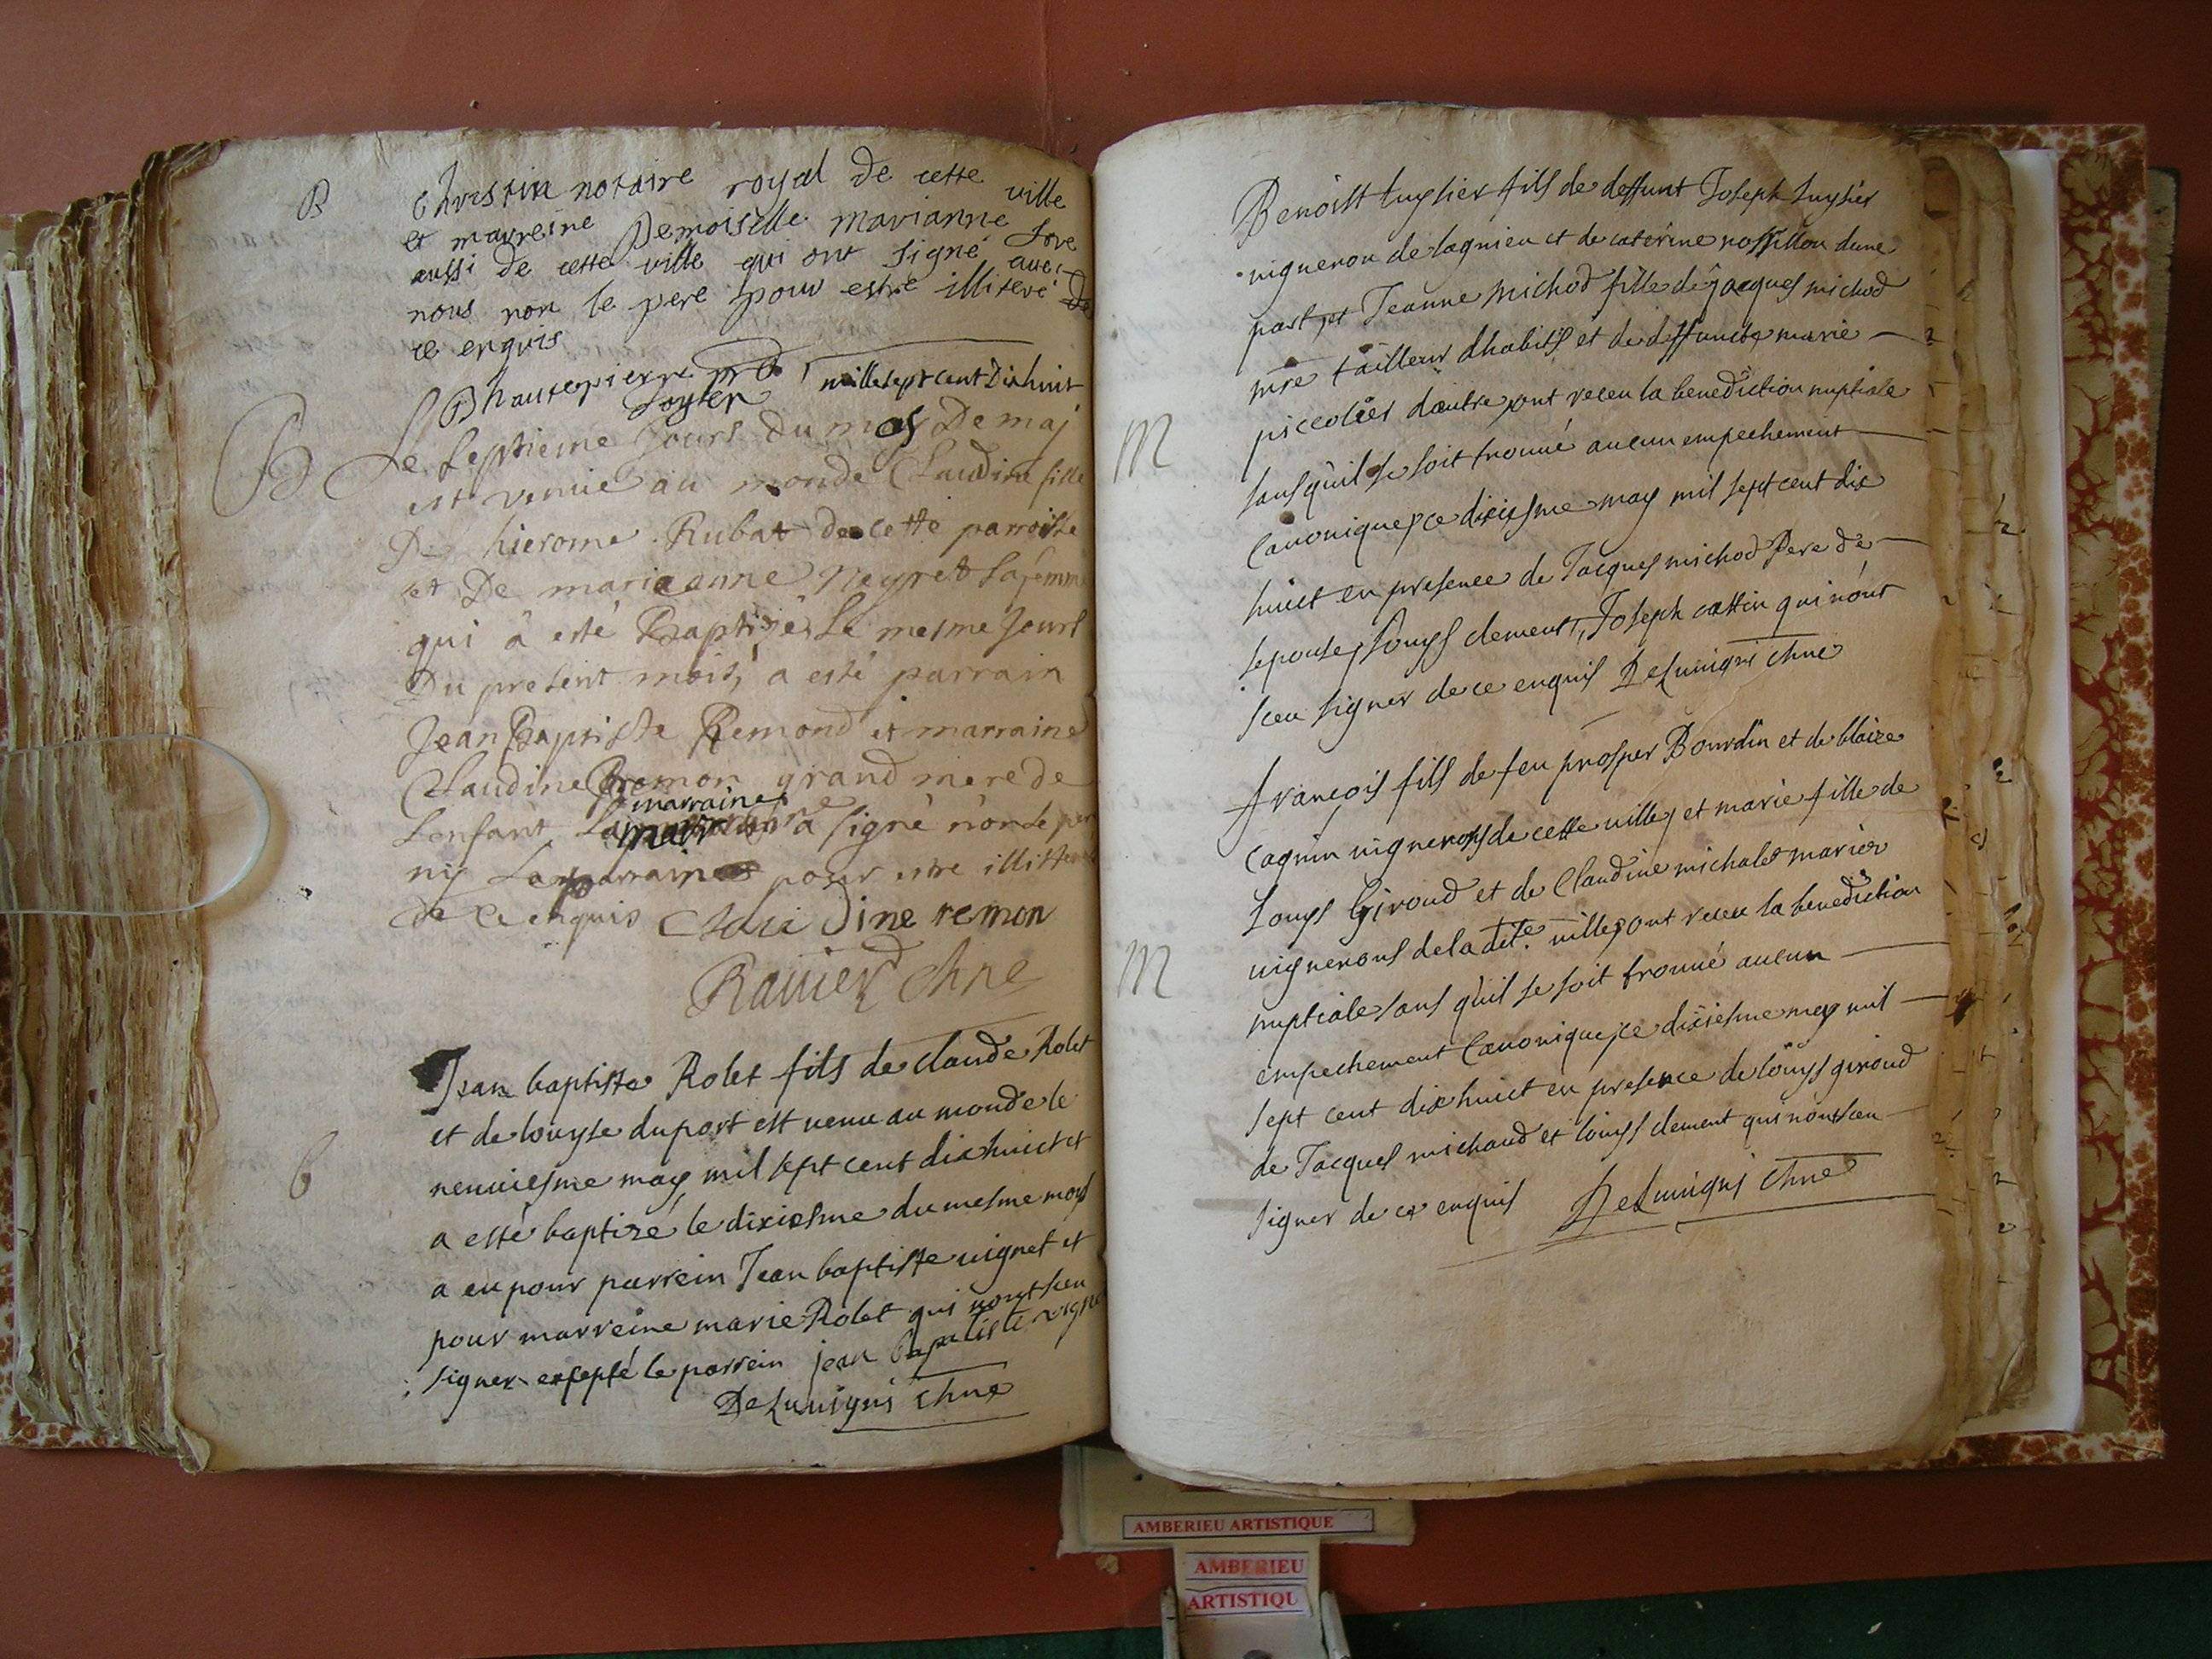 B
Christin notaire royal de cette ville
et marreine Demoiselle marianne
aussi de cette ville qui ont signé avec
nous non le pere pour estre illiteré de
ce enquis
Bhautepierre
mille sept cent Dixhuit
B
Le Septieme Jours du mois De maj
est venüe au monde Claudine fille
De hierome Rubat de cette parroisse
et De marieanne Neyret Safemme
qui à esté Baptizée Le mesme Jours
Du present mois, a esté parrain
Jean Baptiste Remond et marraine
Claudine Remon grand mere de
Lenfant La marraine à signé non le pere
ny Le parrain pour estre illitteré
de Ce enquis Clau Dine remon
Ravier chne
b
Jean baptiste Rolet fils de claude Rolet
et de louyse duport est venu au monde le
neuviesme may mil sept cent dixhuict et
a esté baptizé le dixiesme du mesme mois
a eu pour parrein Jean baptiste vignet et
pour marreine marie Rolet qui nont sceu
signer excepté le parrein jean bapatiste
DeLuvigni chne
M
Benoistt luysier fils de deffunt Joseph luysier
vigneron de lagnieu et de caterine rossillon dune
part, et Jeanne Michod fille de Jacques michod
mre tailleur dhabits et de deffuncte marie
d'autre, ont receu la benediction nuptiale
sans quil se soit trouvé aucun empechement
Canonique, ce dixiesme may mil sept cent dix
huict en presence de Jacques michod Pere de
lepouse, Louys clement, Joseph cattin qui nont
sceu signer de ce enquis DeLuvigni chne
M
francois fils de feu prosper Bourdin et de blaize
cagnin vignerons de cette ville, et marie fille de
Louys Giroud et de Claudine michalet mariés
vignerons de la dite ville, ont receu la benediction
nuptiale sans quil se soit trouvé aucun
empechement Canonique, ce dixiesme may mil
sept cent dix huict en presence de louys giroud
de Jacques michaud et louys clement qui nont sceu
signer de ce enquis DeLuvigni chne
AMBERIEU ARTISTIQUE
AMBERIEU
ARTISTIQU